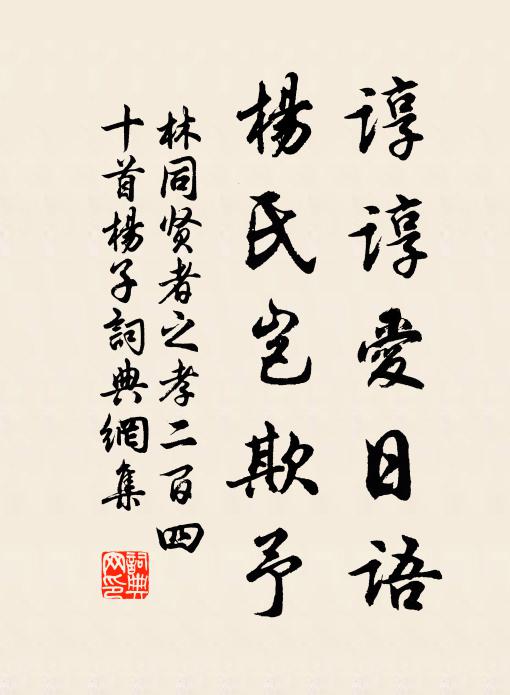 谆谆愛日語
楊氏岂欺予
林同贤者之孝二百四
十首楊子詞典網集
詞典
网印